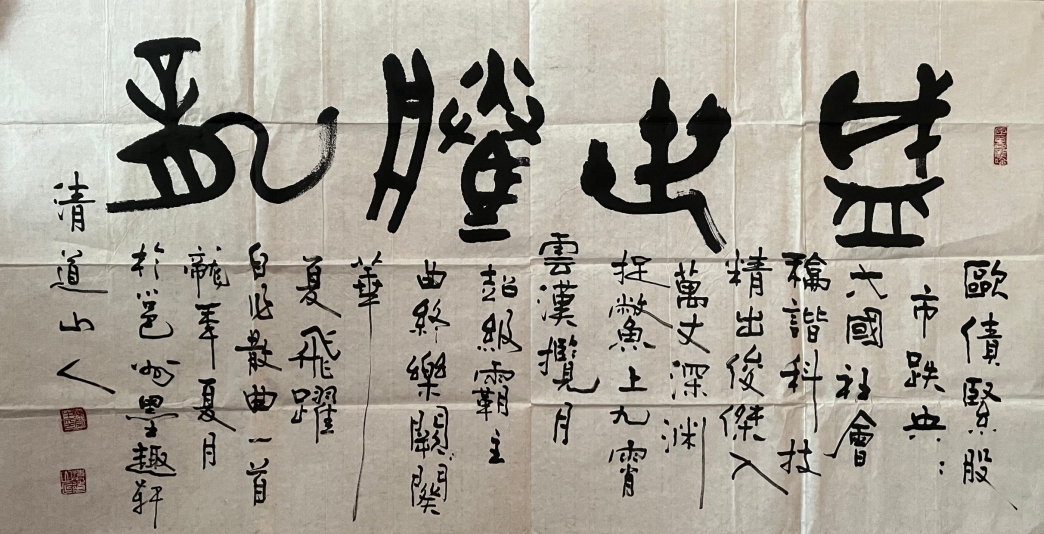 盛世騰龍
歐債緊股
市跌
大國社會
龢諧科技
精出俊傑入
萬丈深淵
捉鱉上九霄
雲漢攬月
超級霸主
曲終樂
華
夏飛躍
自作散曲一首
龍年夏月
於邕州墨趣軒
清道山人